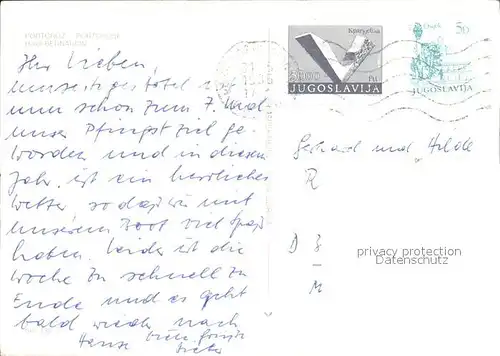 PORTOROŽ - PORTOROSE
Hotel BERNARDIN
Ihr Lieben,
unseitiges Hotel ist
nun schon zum 7. Mal
unser Pfingstziel ge-
worden und in diesem
Jahr ist ein herrliches
Wetter, sodaß wir mit
unserem Boot viel Spaß
haben. Leider ist die
Woche zu schnell zu
Ende und es geht
bald wieder nach
Hause
Kragujevac
50.00
JUGOSLAVIJA
Osijek
5D
JUGOSLAVIJA
Gerhard und Hilde
R
D 8
M
privacy protection
Datenschutz